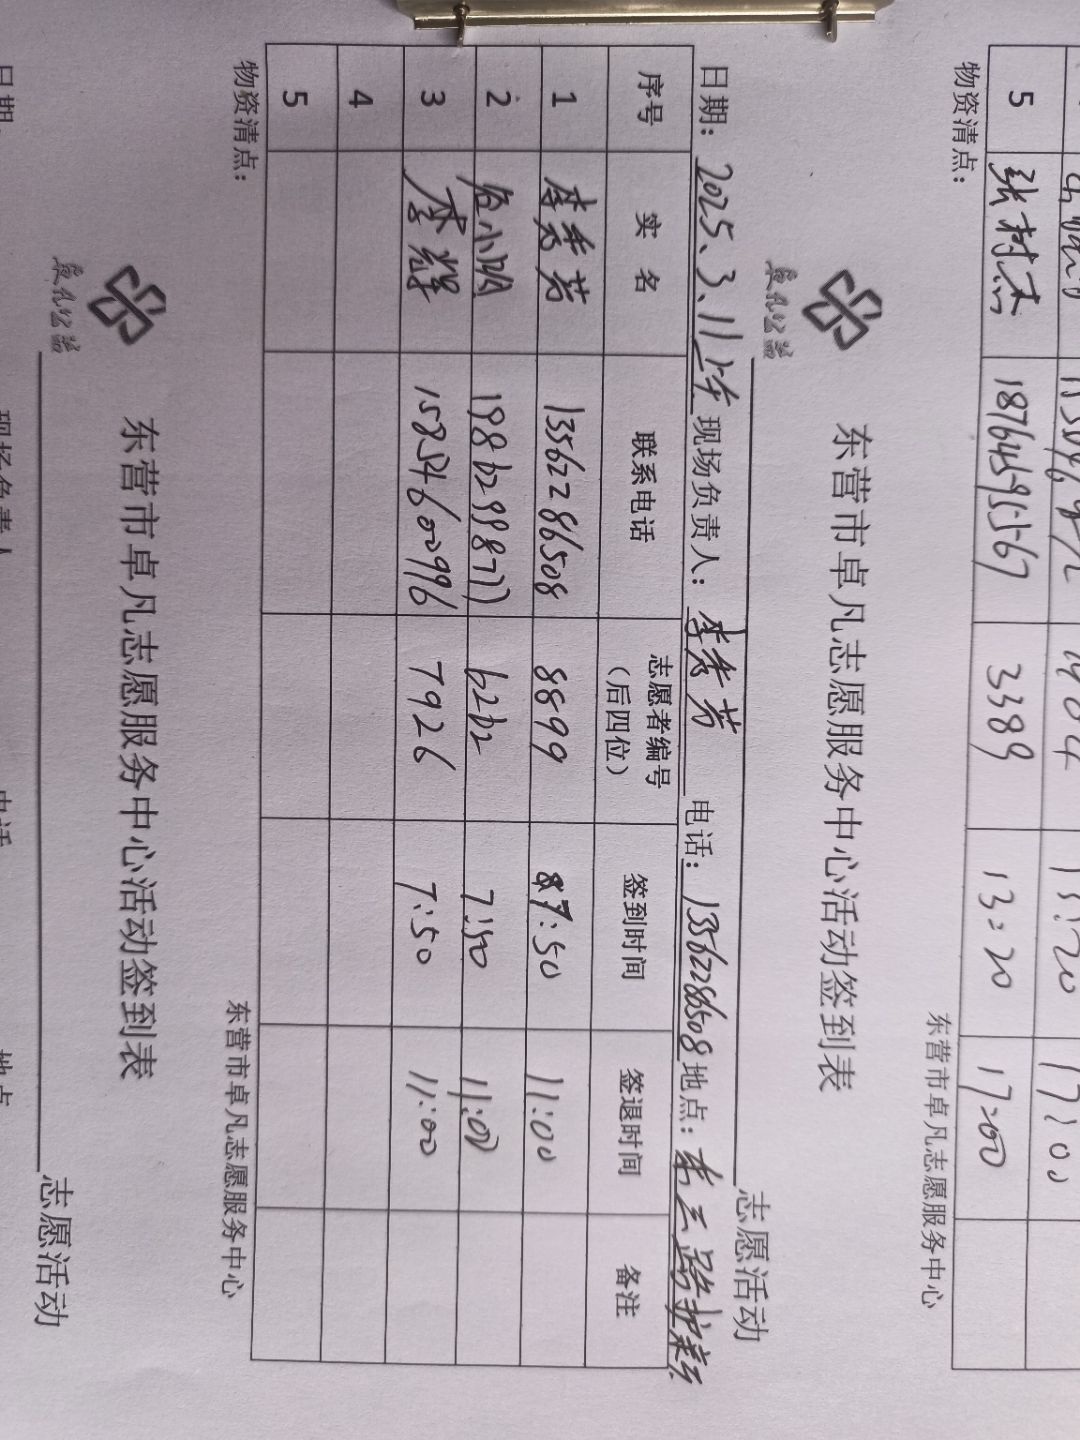 5 张树杰 18764595567 3389 13:20 17:00
物资清点： 东营市卓凡志愿服务中心
东营市卓凡志愿服务中心活动签到表
志愿活动
日期：2025.3.11上午 现场负责人：李秀芳 电话：13562286508 地点：东三路护素
序号 实 名 联系电话 志愿者编号（后四位） 签到时间 签退时间 备注
1 李秀芳 13562286508 8899 7:50 11:00
2 19862998777 6262 7:50 11:00
3 李辉 15854600996 7926 7:50 11:00
4
5
物资清点： 东营市卓凡志愿服务中心
东营市卓凡志愿服务中心活动签到表
志愿活动
日期： 现场负责人 电话 地点